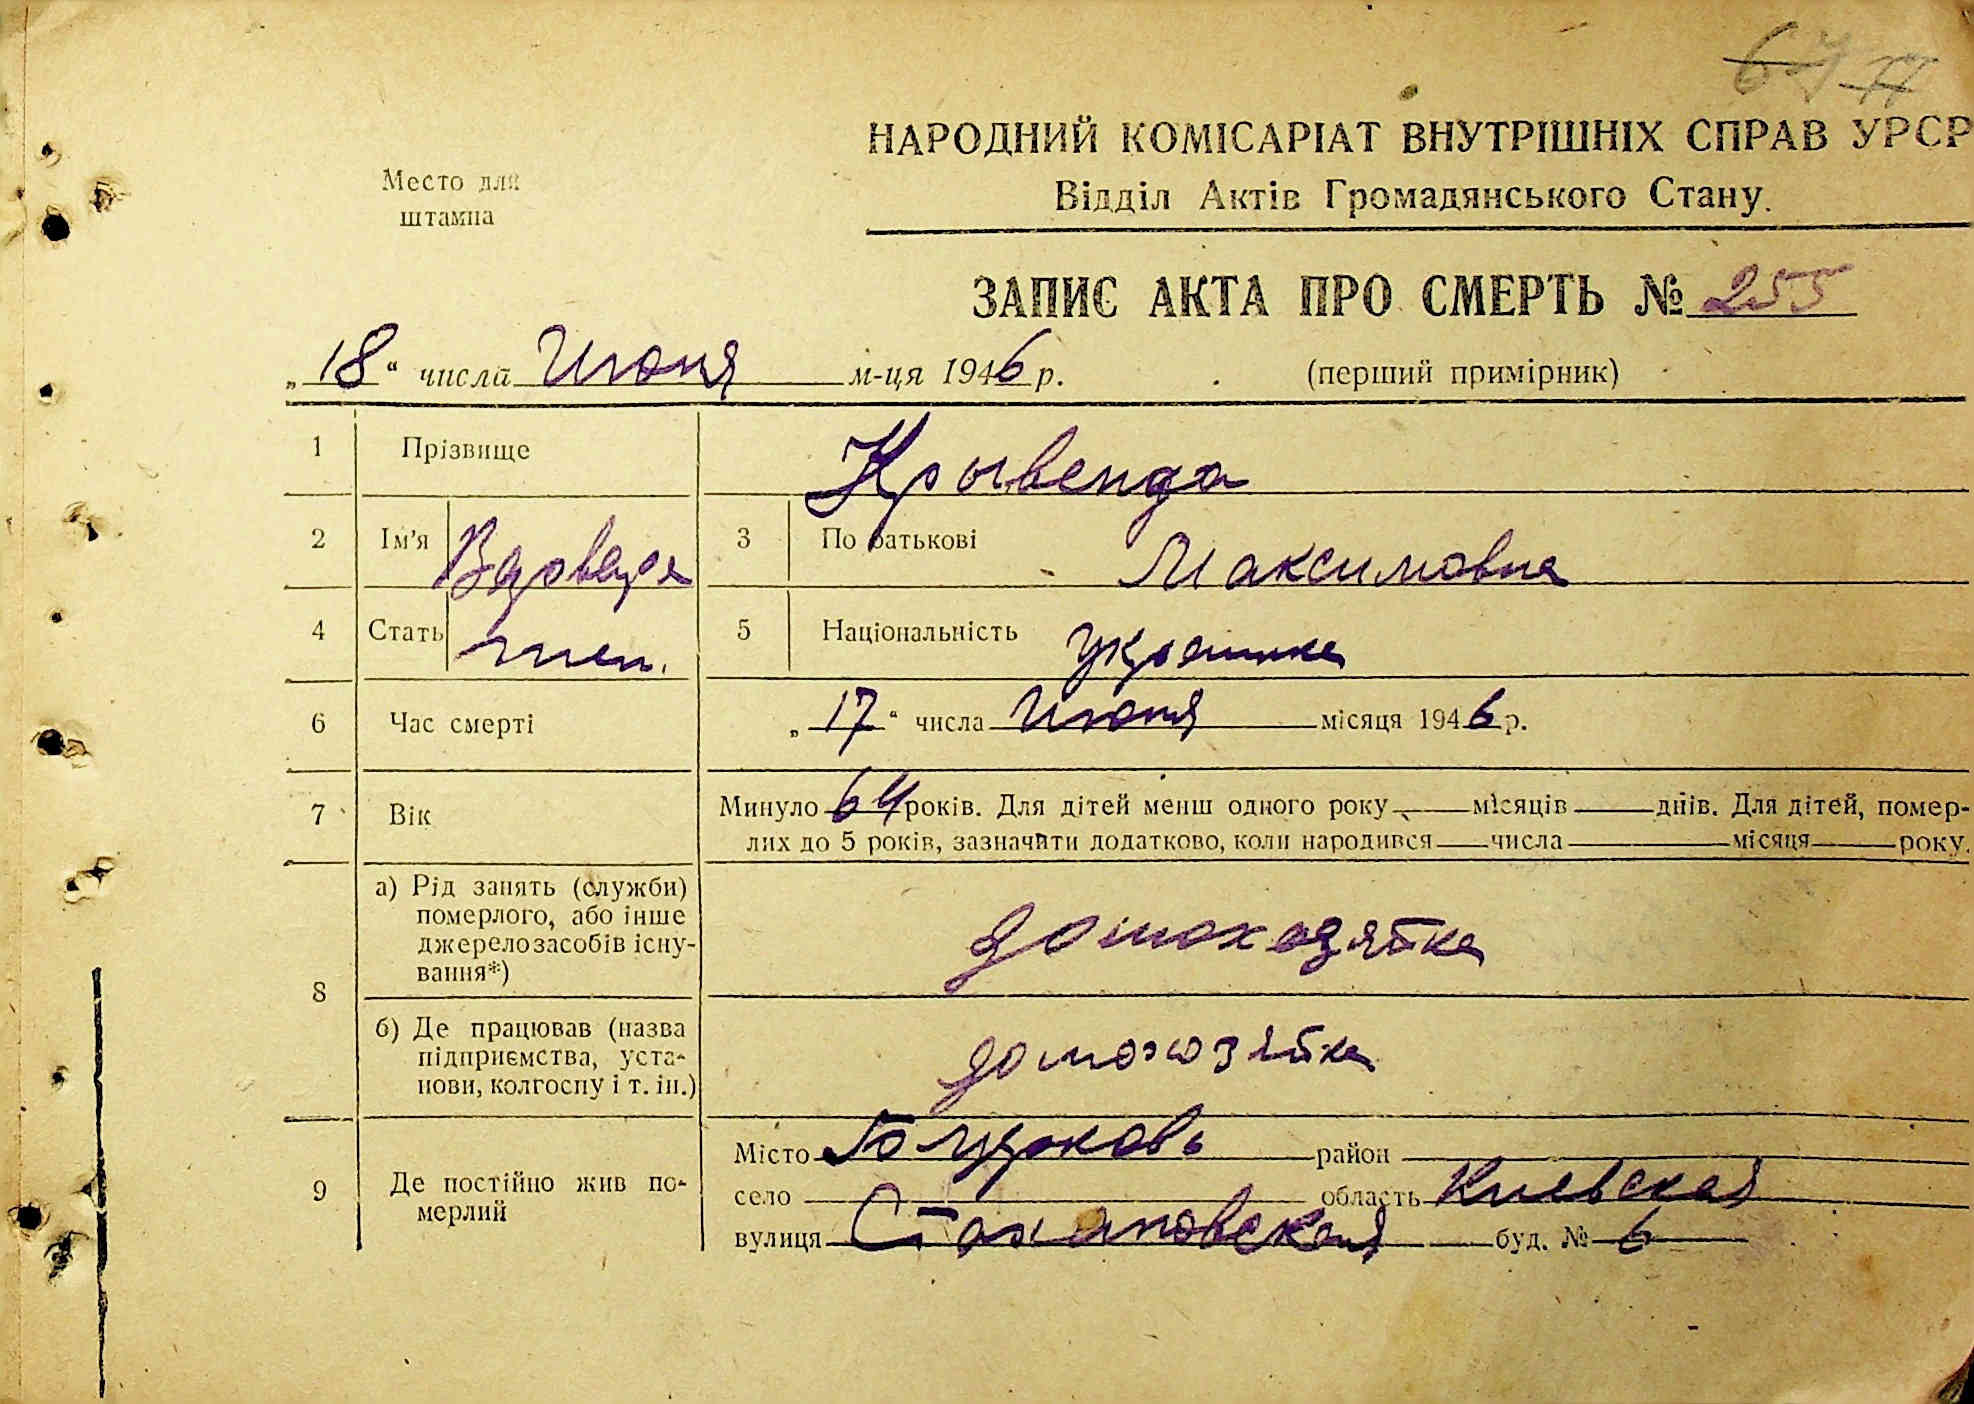 67 77
НАРОДНИЙ КОМІСАРІАТ ВНУТРІШНІХ СПРАВ УРСР
Место для
штампа
Відділ Актів Громадянського Стану.
ЗАПИС АКТА ПРО СМЕРТЬ № 255
„18“ числа Июня м-ця 1946 р. (перший примірник)
1 Прізвище Крывенда
2 Ім'я 3 По батькові Максимовна
4 Стать жен. 5 Національність украинка
6 Час смерті „17“ числа Июня місяця 1946 р.
7 Вік Минуло 64 років. Для дітей менш одного року місяців днів. Для дітей, помер-
лих до 5 років, зазначити додатково, коли народився числа місяця року.
8 а) Рід занять (служби)
померлого, або інше
джерело засобів існу-
вання*) домохозяйка
б) Де працював (назва
підприємства, уста-
нови, колгоспу і т. ін.) домохозяйка
9 Де постійно жив по-
мерлий
Місто район
село область Киевская
вулиця Стахановская буд. № 6